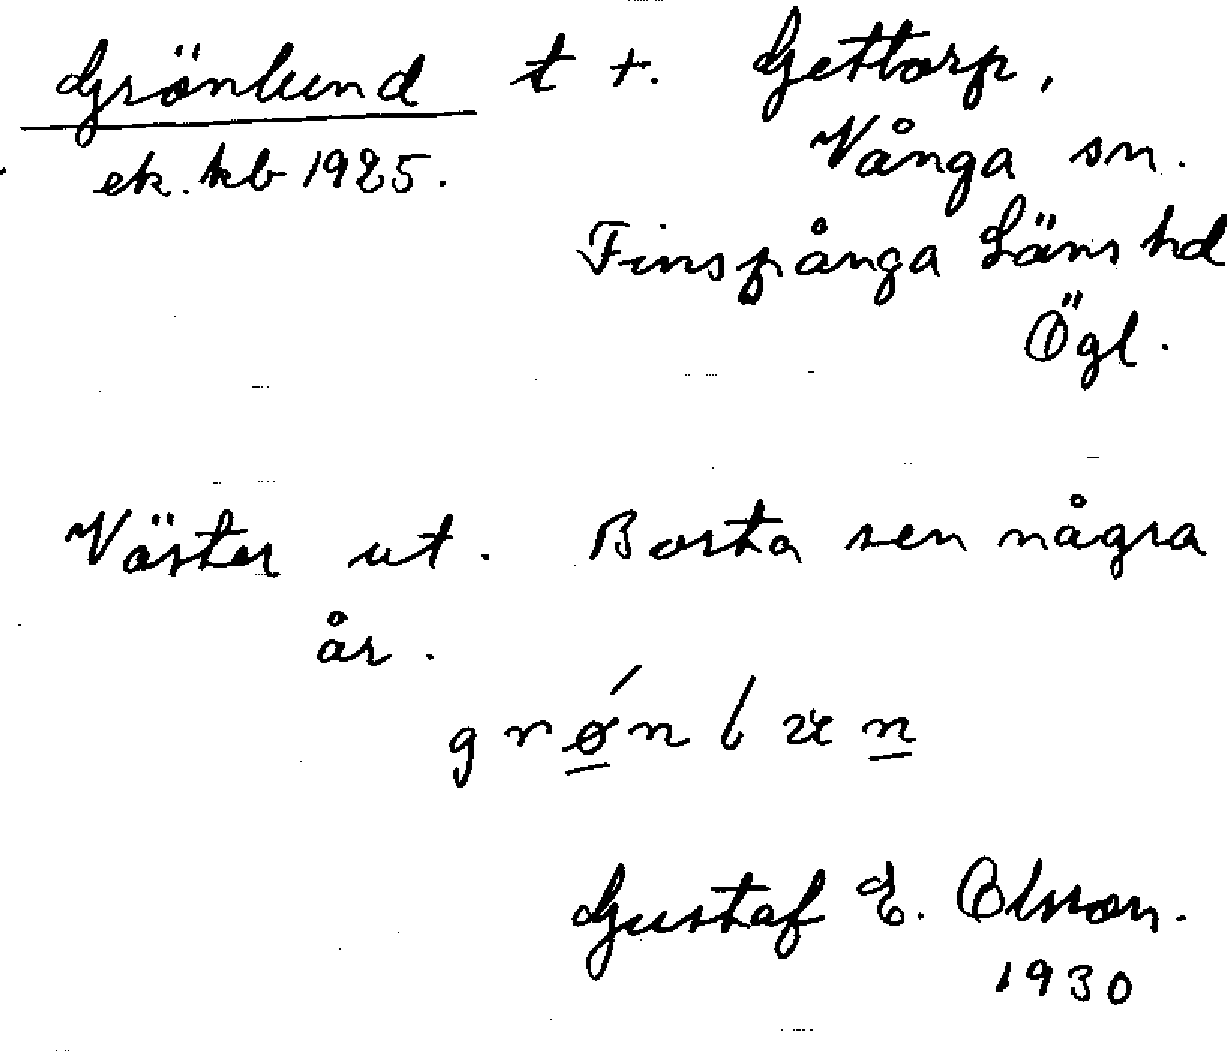 Grönlund t +. Gettorp,
ek. kb 1925. Vånga sn.
Finspånga Läns hd
Ögl.
Väster ut. Borta sen några
år.
grǿnlun
Gustaf E. Olsson.
1930